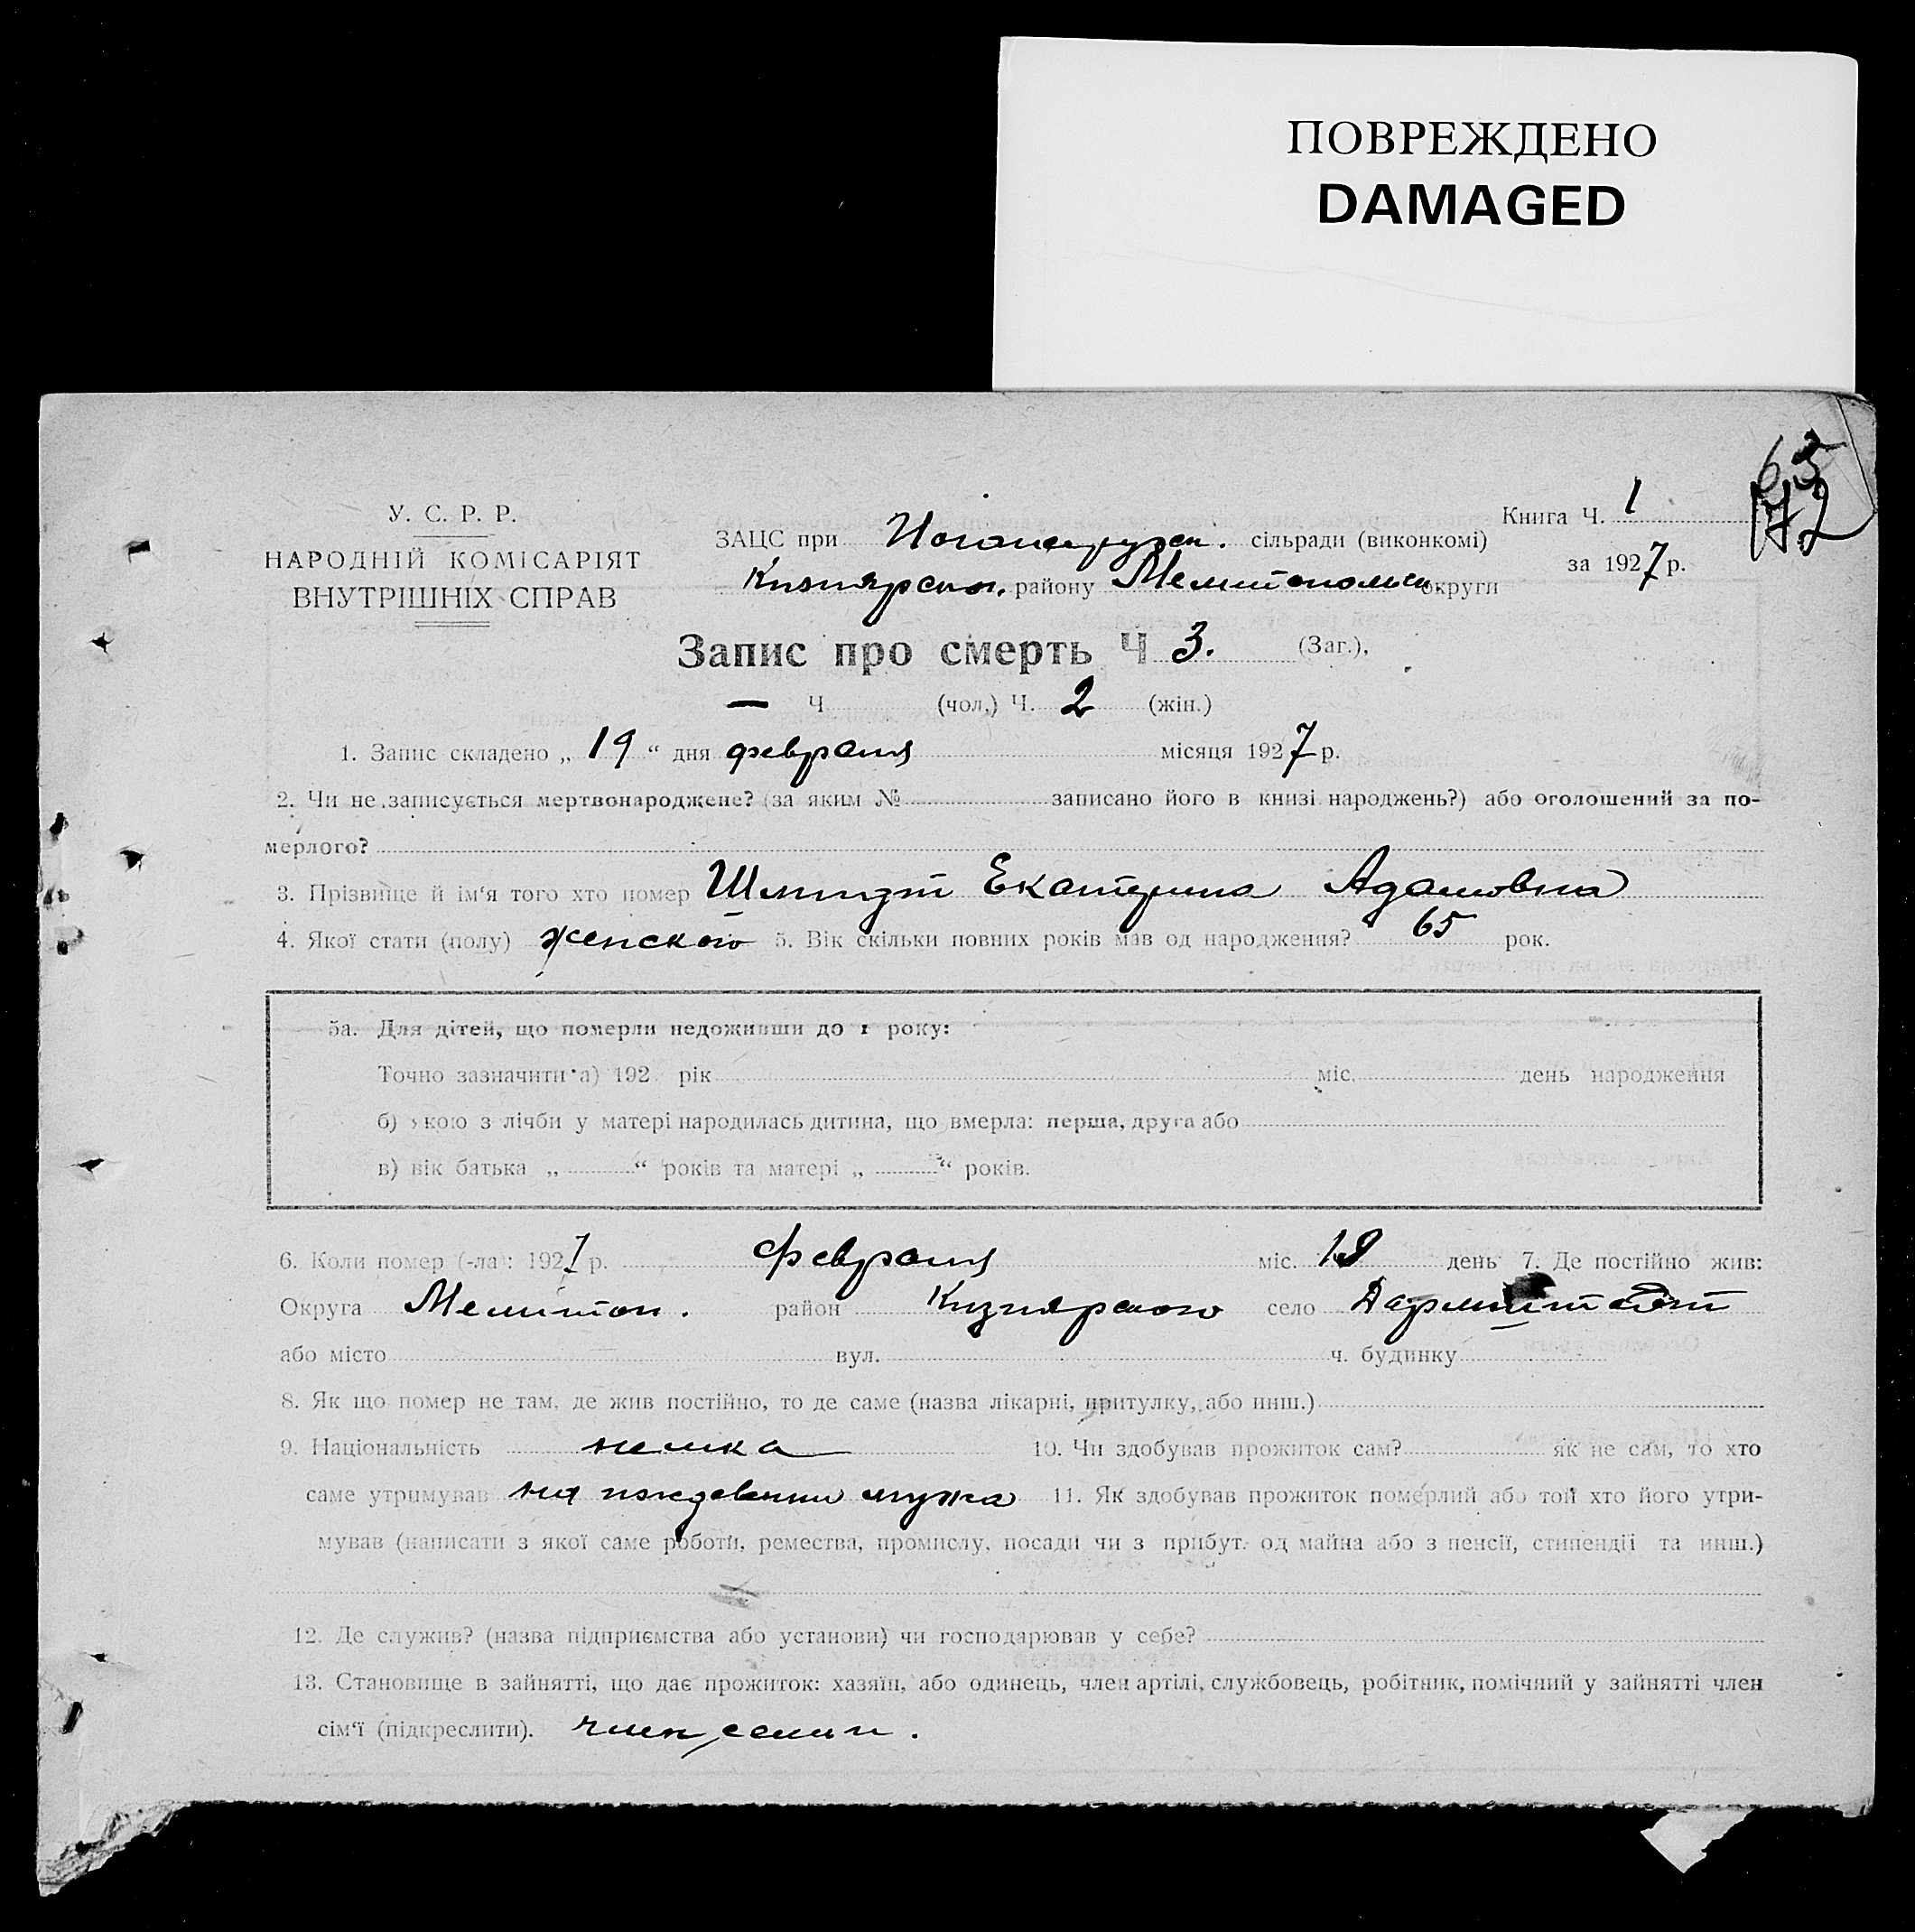 ПОВРЕЖДЕНО
DAMAGED
У. С. Р. Р.
НАРОДНІЙ КОМІСАРІЯТ
ВНУТРІШНІХ СПРАВ
Книга Ч. 1
за 1927 р.
ЗАЦС при Иоганеруэск. сільради (виконкомі)
Кизиярском. району Мелитопольск округи
Запис про смерть Ч 3. (Заг.),
— Ч. (чол.) Ч. 2 (жін.)
1. Запис складено „ 19 “ дня февраля місяця 1927 р.
2. Чи не записується мертвонароджене? (за яким № записано його в книзі народжень?) або оголошений за по-
мерлого?
3. Прізвище й ім‘я того хто помер Шмидт Екатерина Адамовна
4. Якої стати (полу) женского 5. Вік скільки повних років мав од народження? 65 рок.
5а. Для дітей, що померли недоживши до 1 року:
Точно зазначити а) 192 рік міс. день народження
б) якою з лічби у матері народилась дитина, що вмерла: перша, друга або
в) вік батька „ “ років та матері „ “ років.
6. Коли помер (-ла): 1927 р. февраля міс. 18 день 7. Де постійно жив:
Округа Мелитоп. район Кизиярского село Дармштадт
або місто вул. ч. будинку
8. Як що помер не там, де жив постійно, то де саме (назва лікарні, притулку, або инш.)
9. Національність немка 10. Чи здобував прожиток сам? як не сам, то хто
саме утримував на иждевении мужа 11. Як здобував прожиток померлий або той хто його утри-
мував (написати з якої саме роботи, ремества, промислу, посади чи з прибут. од майна або з пенсії, стипендії та инш.)
12. Де служив? (назва підприємства або установи) чи господарював у себе?
13. Становище в зайнятті, що дає прожиток: хазяїн, або одинець, член артілі, службовець, робітник, помічний у зайнятті член
сім‘ї (підкреслити). член семии.